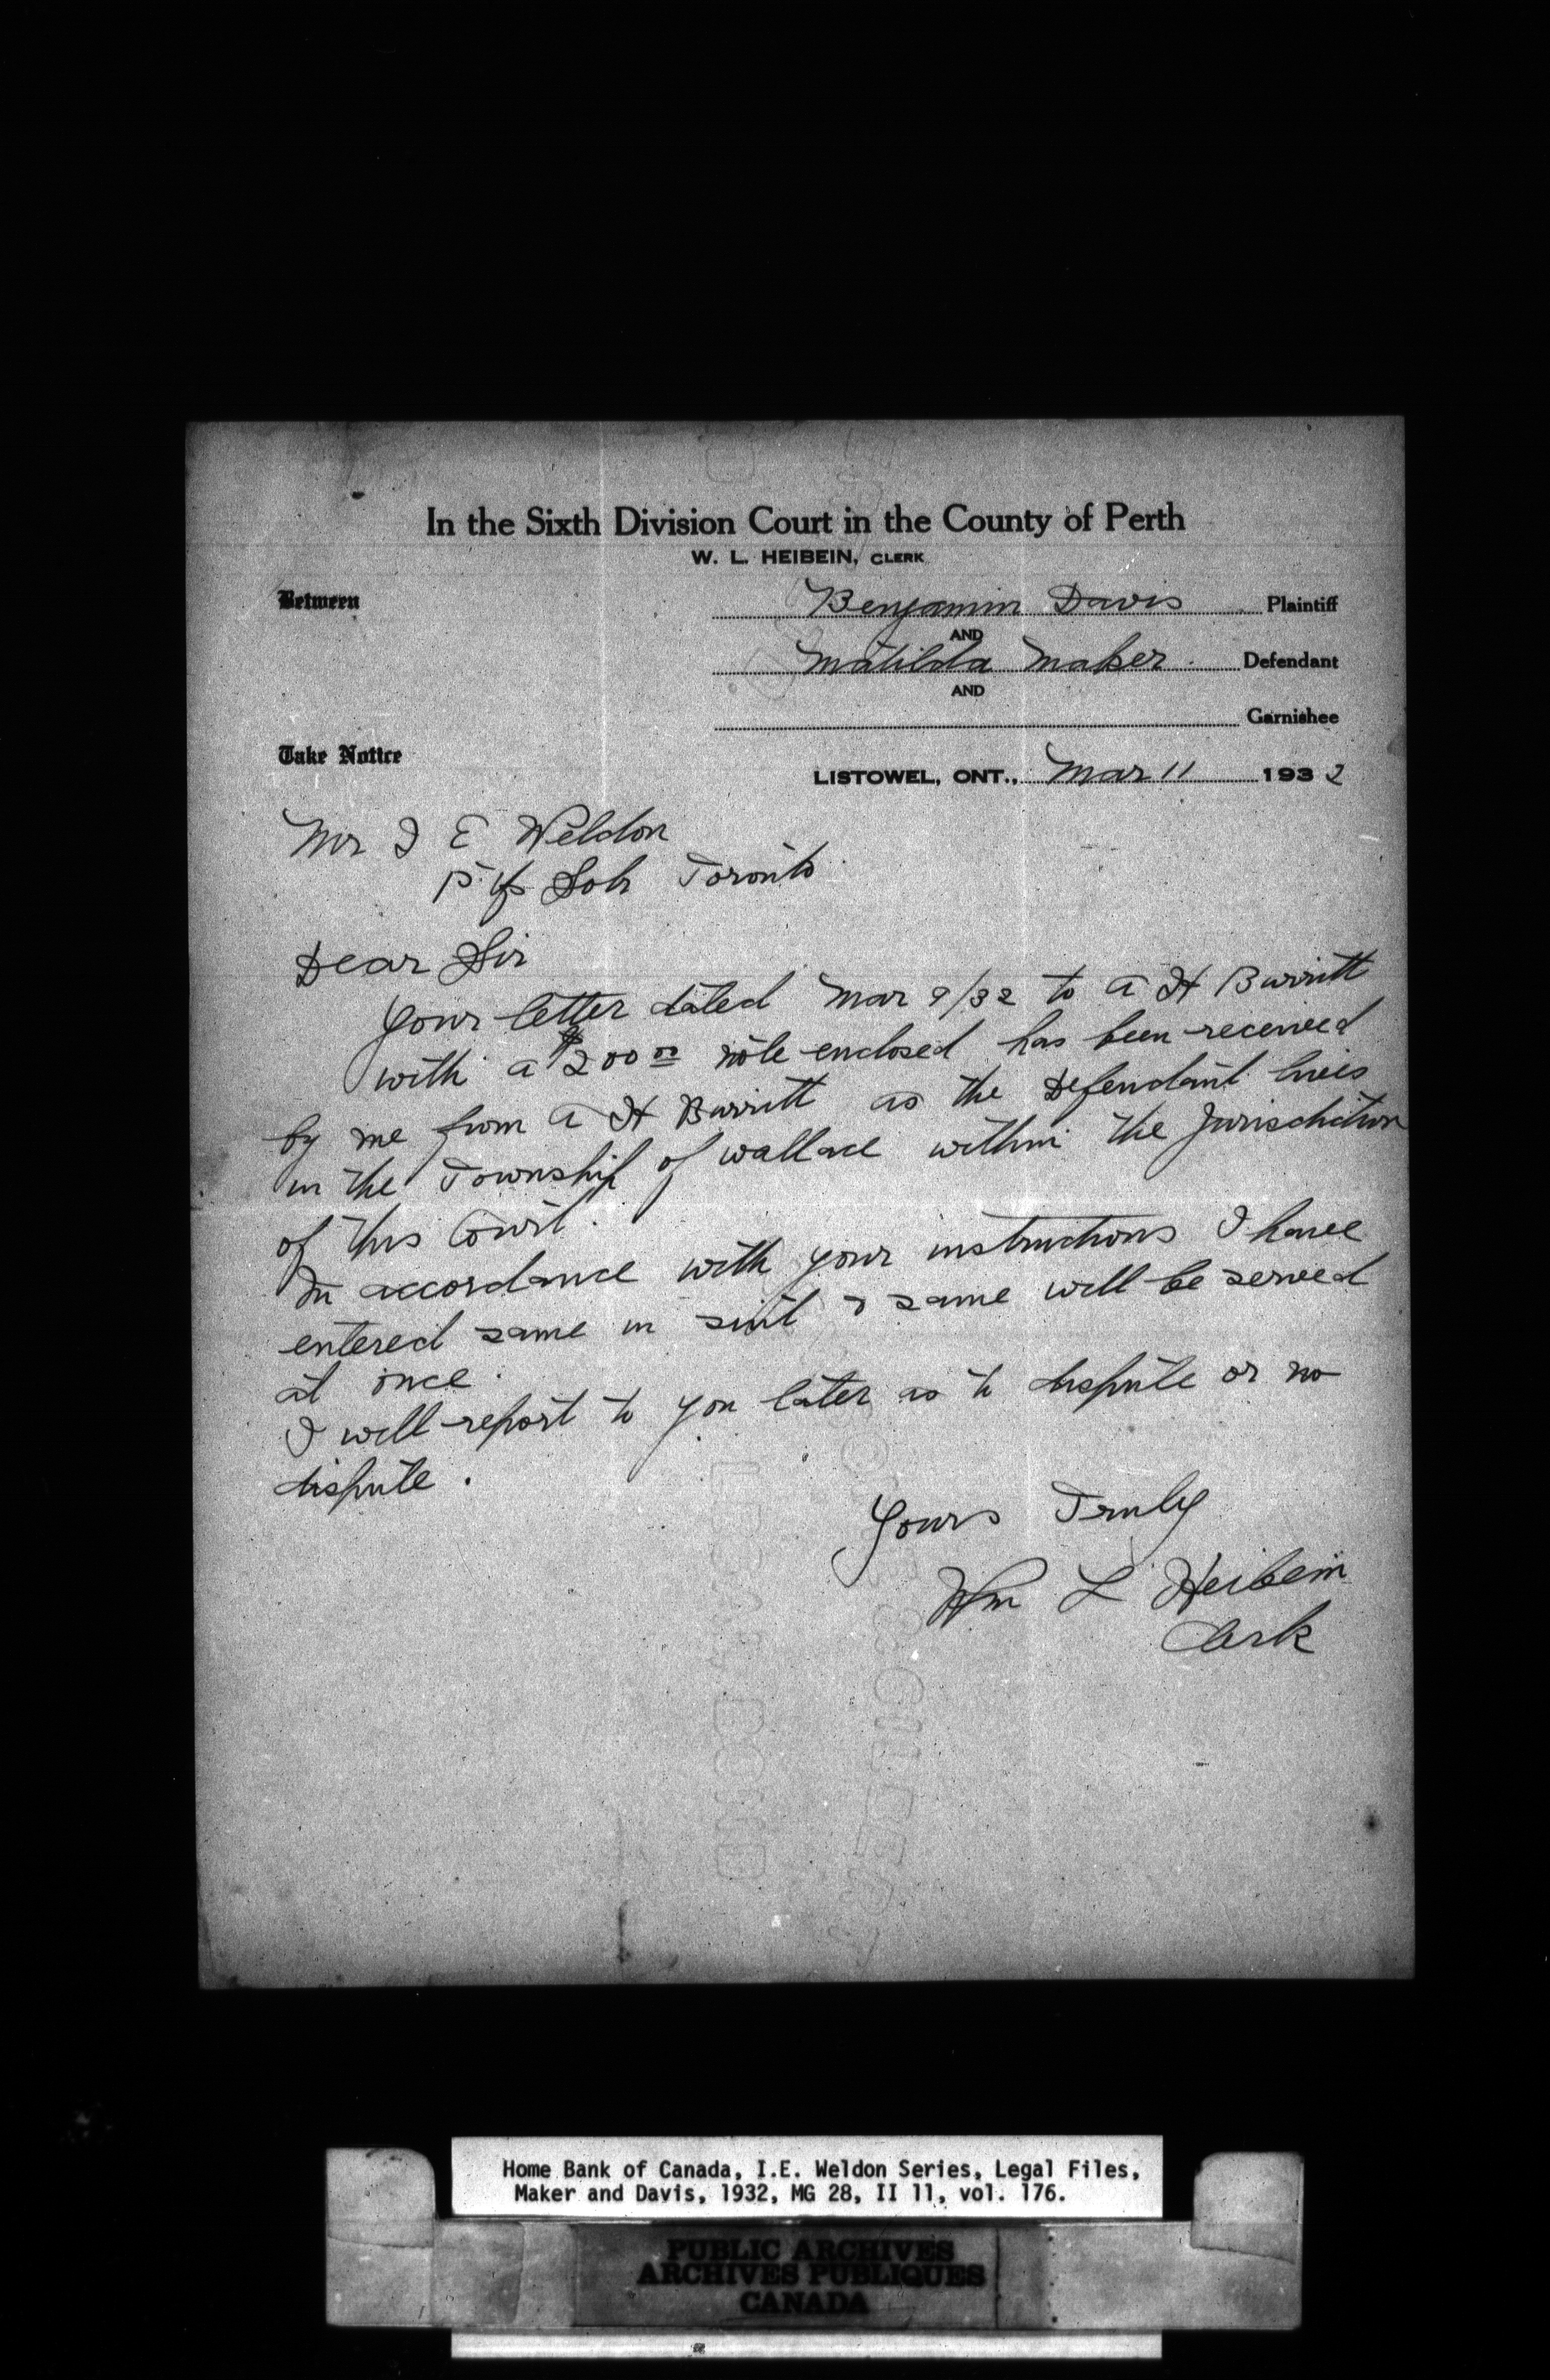 In the Sixth Division Court in the County of Perth
W. L. HEIBEIN, CLERK
Between
Benjamin Davis Plaintiff
AND
Matilda Maker. Defendant
AND
Garnishee
Take Notice
LISTOWEL, ONT., Mar 11 1932
Mr I E Weldon
Solr Toronto
Dear Sir
Your letter dated Mar 9/32 to A H Burritt
with a $200 00 note enclosed has been received
by me from A H Burritt as the Defendant lives
in the Township of Wallace within the Jurisdiction
of this Court.
In accordance with your instructions I have
entered same in suit & same will be served
at once.
I will report to you later as to dispute or no
dispute.
Yours Truly
Wm L Heibein
Clerk
Home Bank of Canada, I.E. Weldon Series, Legal Files,
Maker and Davis, 1932, MG 28, II 11, vol. 176.
PUBLIC ARCHIVES
ARCHIVES PUBLIQUES
CANADA